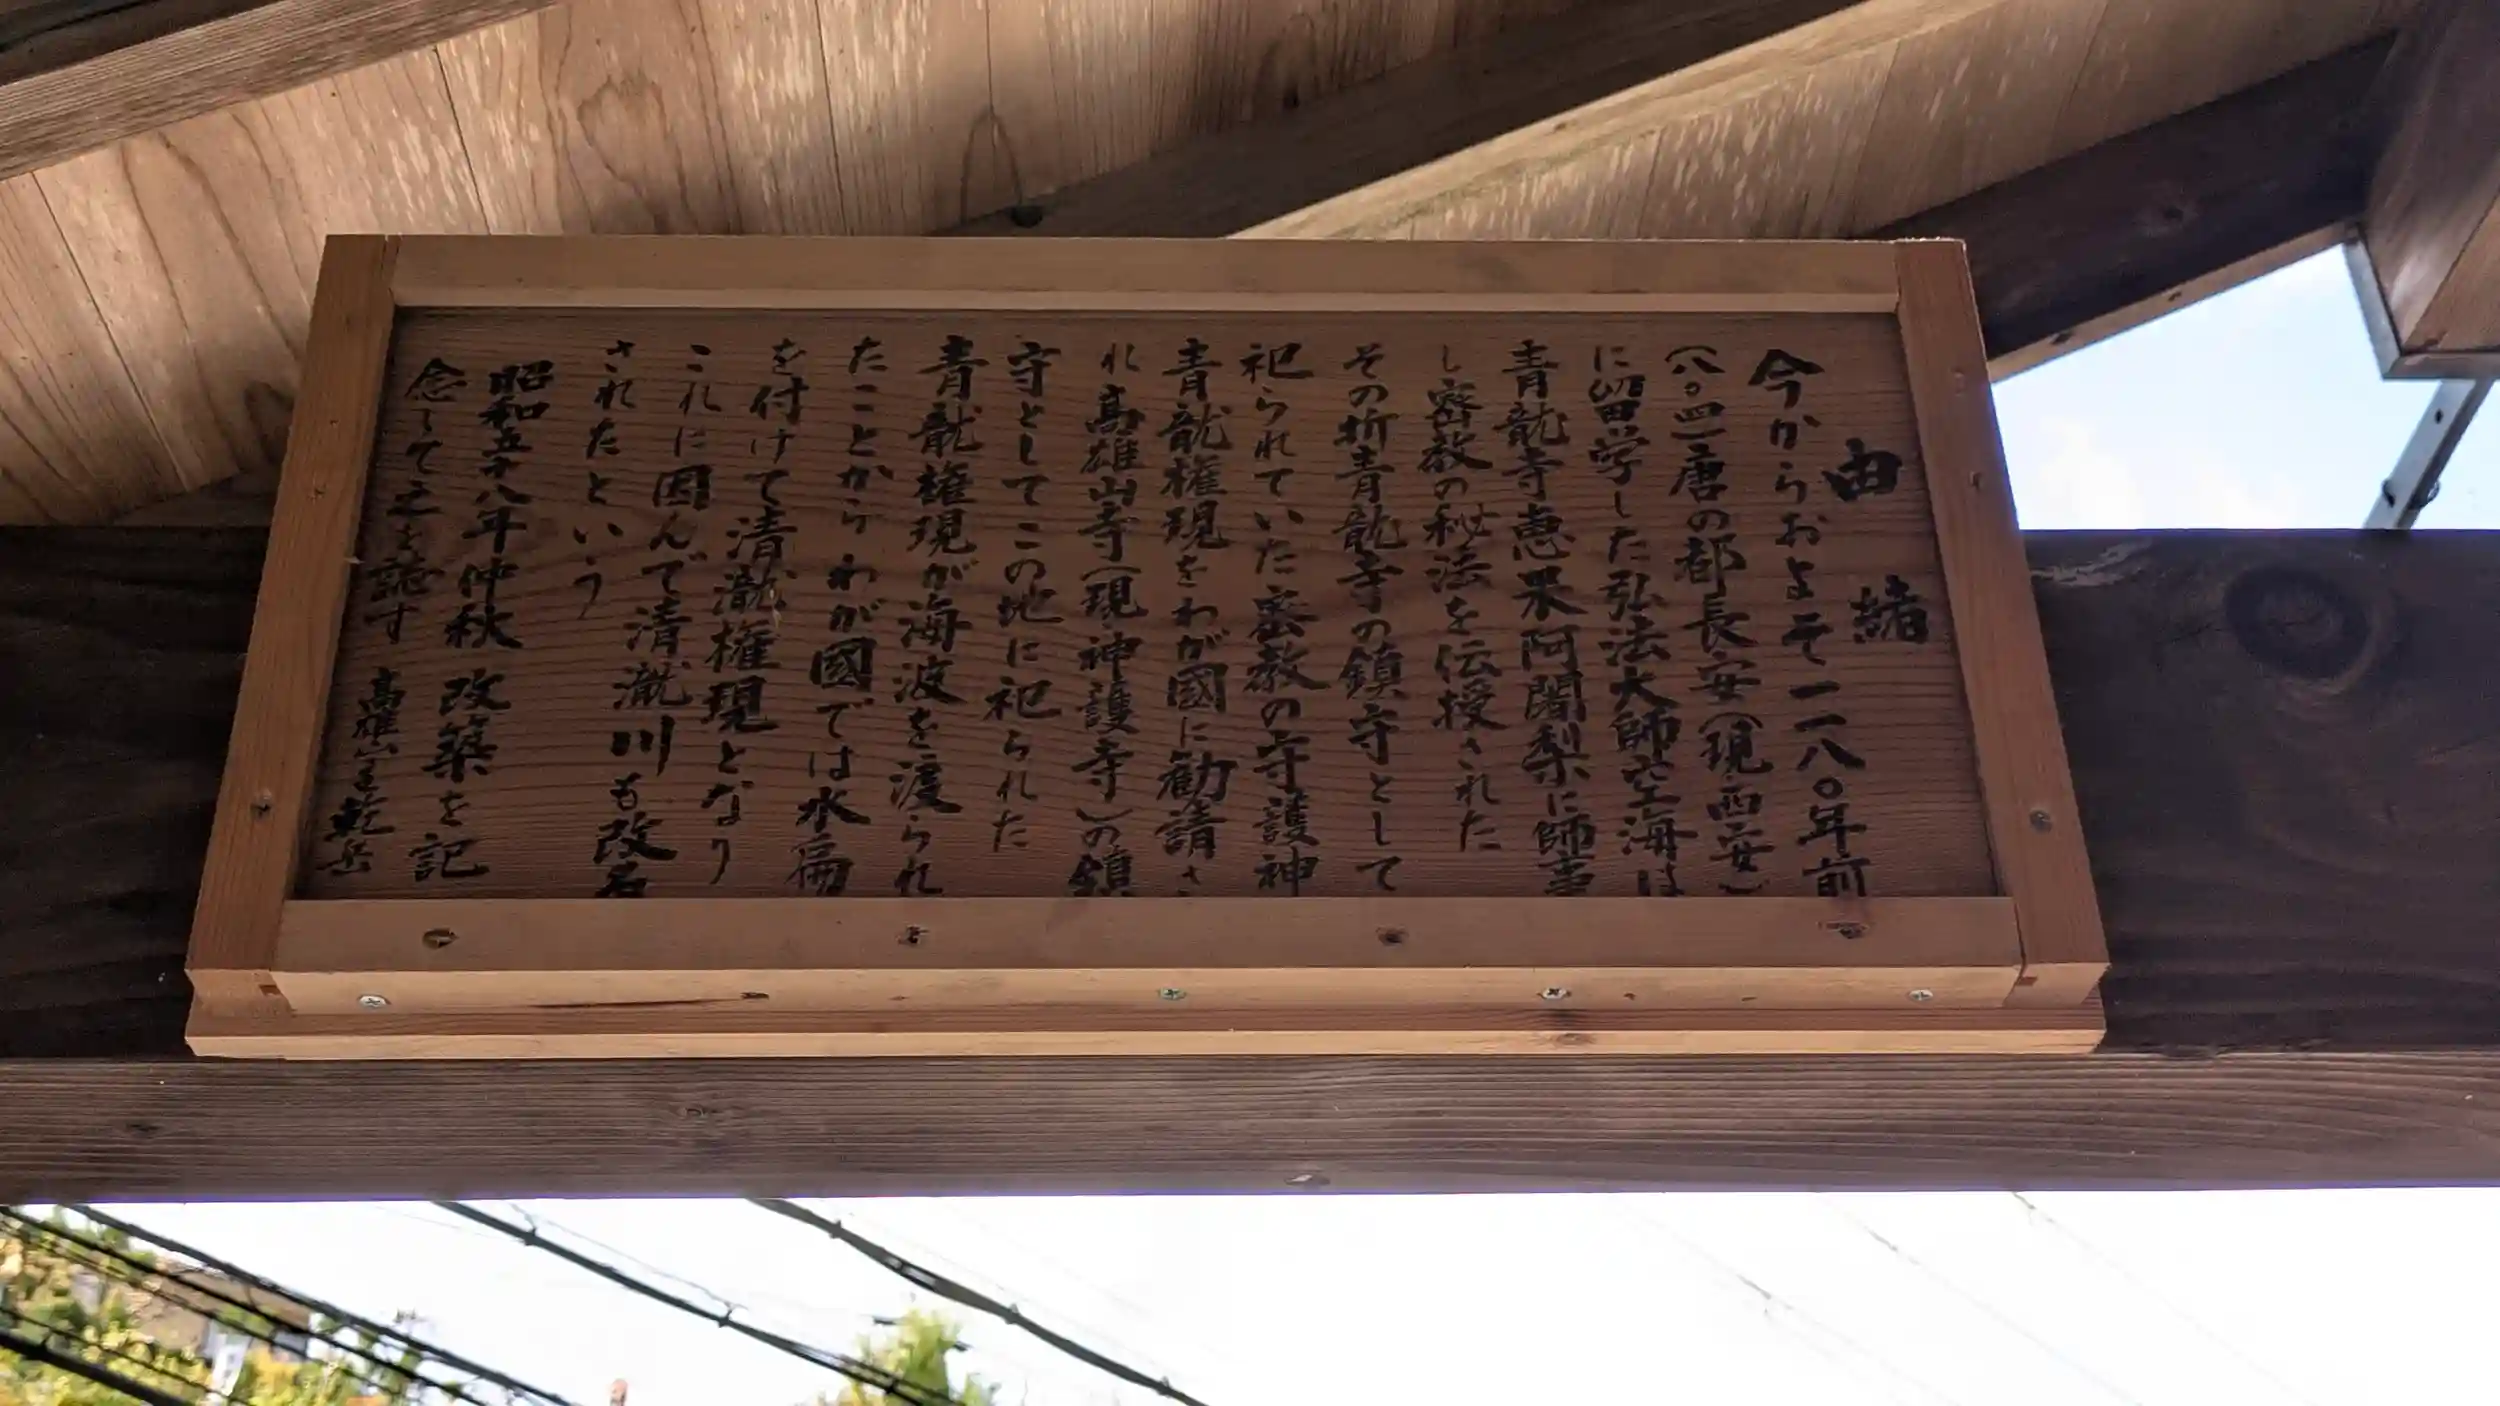 由緒
今からおよそ一一八〇年前
(八〇四)唐の都長安(現・西安)
に留学した弘法大師空海は
青龍寺恵果阿闍梨に師事
し密教の秘法を伝授された
その折青龍寺の鎮守として
祀られていた密教の守護神
青龍権現をわが國に勧請さ
れ高雄山寺(現神護寺)の鎮
守としてこの地に祀られた
青龍権現が海波を渡られ
たことからわが國では水扁
を付けて清瀧権現となり
これに因んで清瀧川も改名
されたという
昭和五十八年仲秋 改築を記
念して之を誌す 高雄山主乾岳